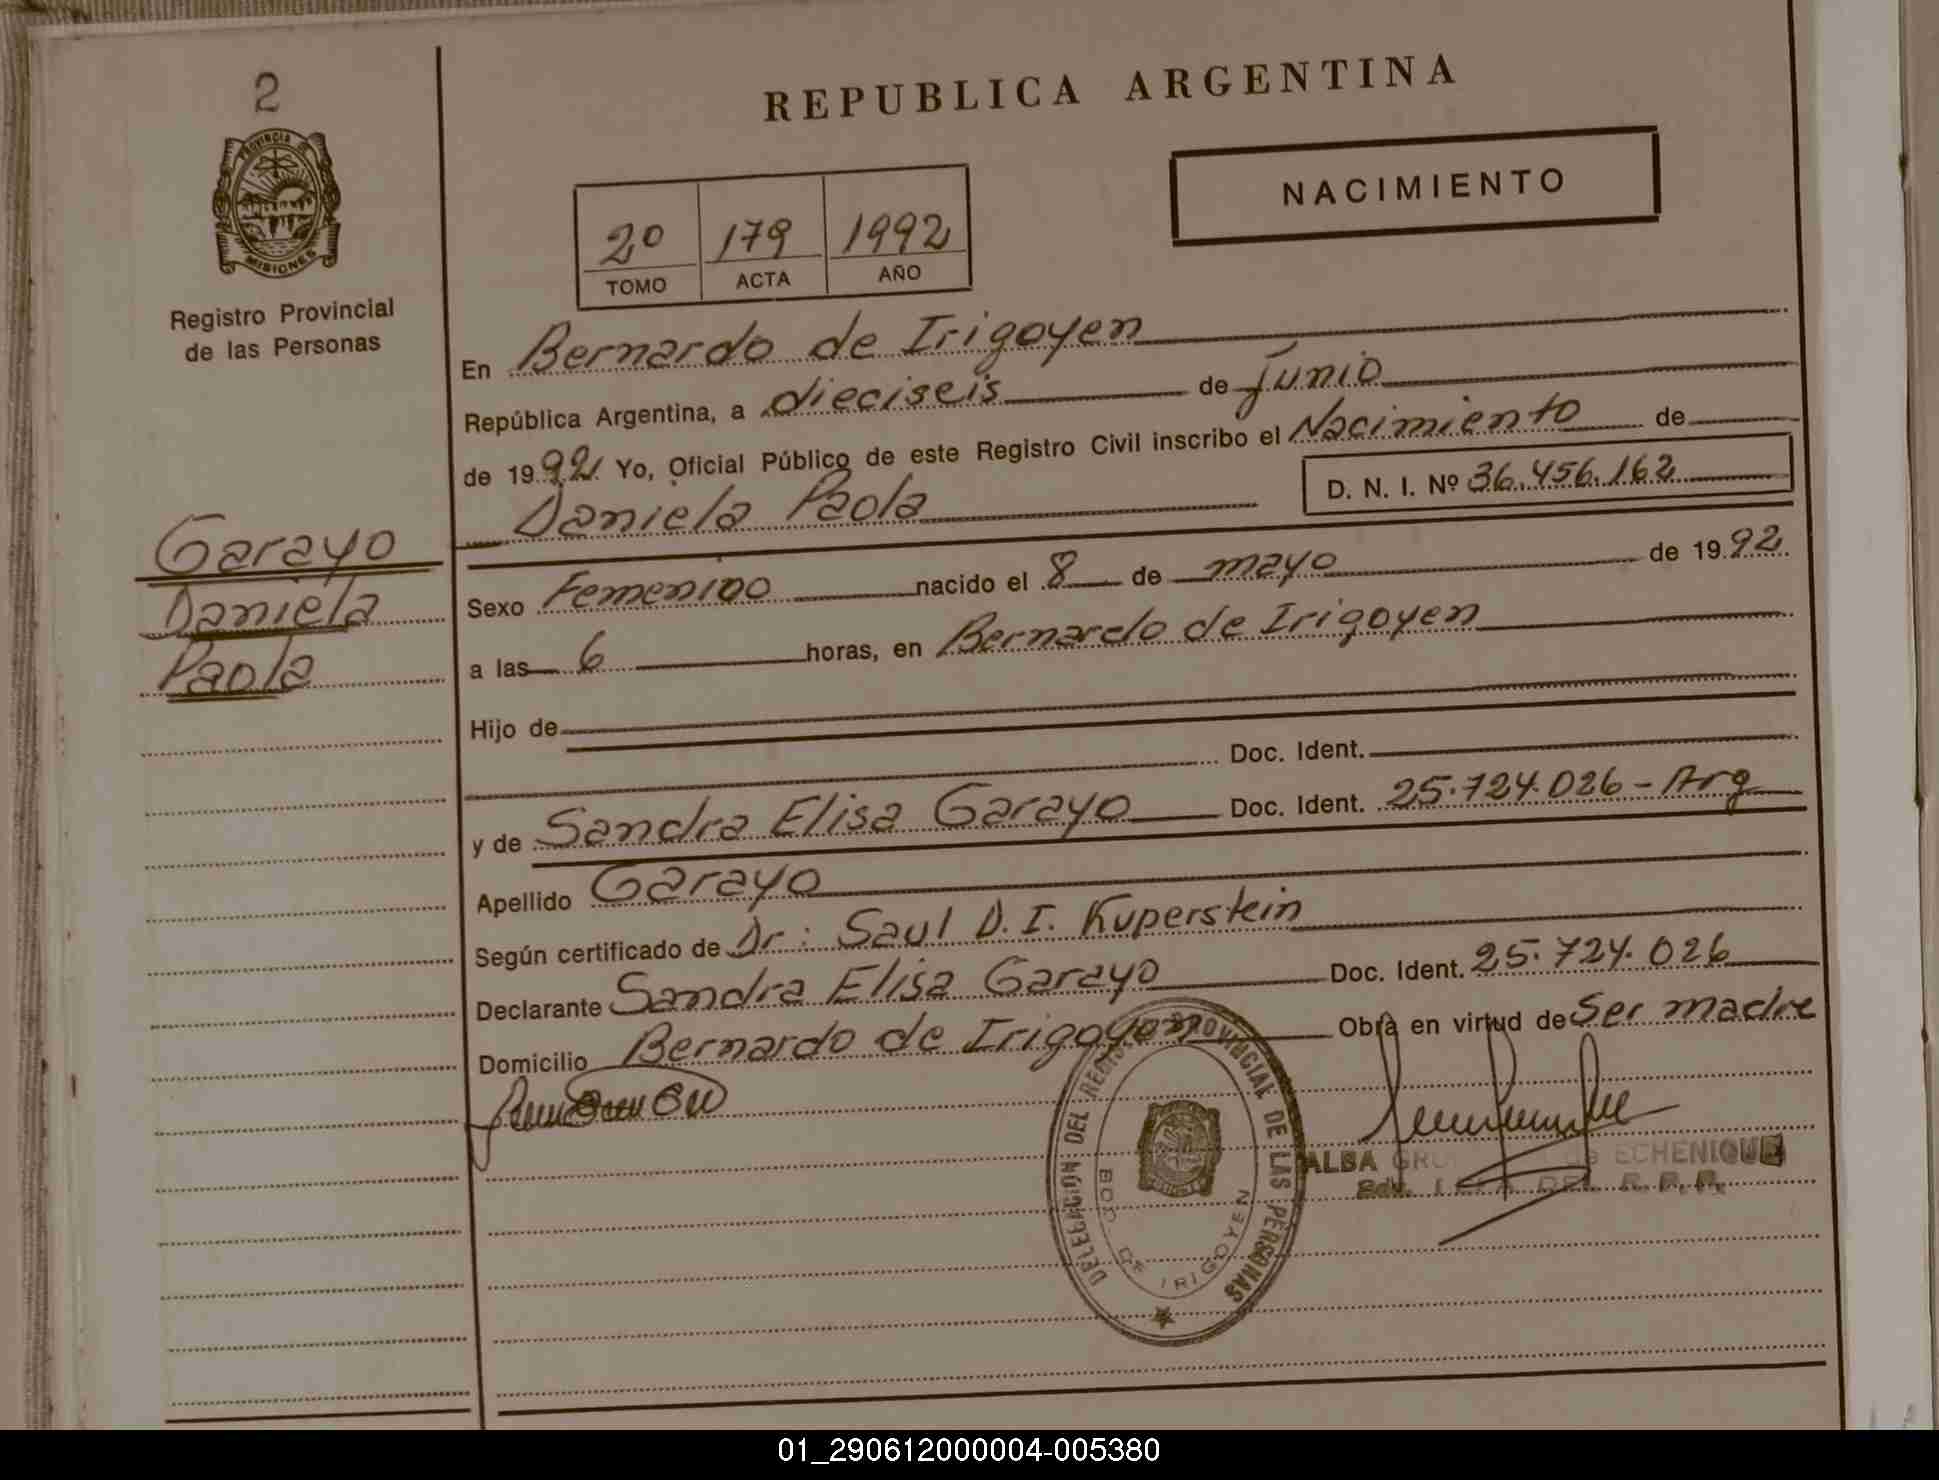 2
PROVINCIA DE
MISIONES
Registro Provincial
de las Personas
Garayo
Daniela
Paola
REPUBLICA ARGENTINA
NACIMIENTO
2º 179 1992
TOMO ACTA AÑO
En Bernardo de Irigoyen
República Argentina, a dieciseis de Junio
de 1992 Yo, Oficial Público de este Registro Civil inscribo el Nacimiento de
Daniela Paola D. N. I. Nº 36.456.162
Sexo Femenino nacido el 8 de mayo de 1992
a las 6 horas, en Bernardo de Irigoyen
Hijo de
Doc. Ident.
y de Sandra Elisa Garayo Doc. Ident. 25.724.026 - Arg
Apellido Garayo
Según certificado de Dr: Saul D. I. Kuperstein
Declarante Sandra Elisa Garayo Doc. Ident. 25.724.026
Domicilio Bernardo de Irigoyen Obra en virtud de Ser madre
DELEGACION DEL REGISTRO PROVINCIAL DE LAS PERSONAS
BDO. DE IRIGOYEN
ALBA de ECHENIQUE
DEL R. P. P.
01_290612000004-005380